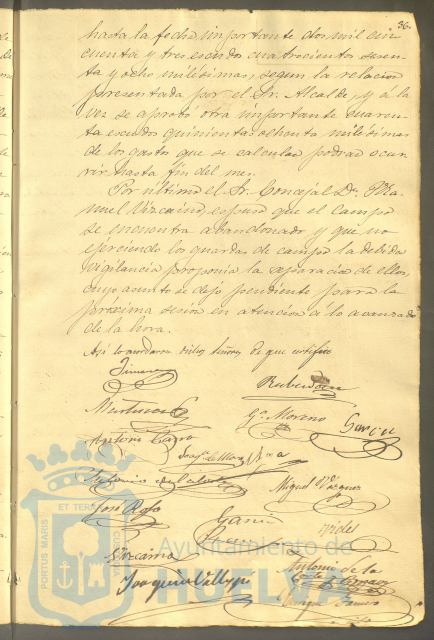 36.
hasta la fecha importante dos mil cin
cuenta y tres escudos cuatrocientos sesen
ta y ocho milésimas, segun la relacion
presentada por el Sr. Alcalde, y á la
vez se aprobó otra importante cuaren
ta escudos quinientas ochenta milésimas
de los gastos que se calculan podrán ocur
rir hasta fin del mes.
Por ultimo el Sr. Concejal Dn. Ma
nuel Vizcaino, espuso que el campo
se encuentra abandonado y que no
ejerciendo los guardas de campo la debida
vigilancia proponia la separacion de ellos,
cuyo asunto se dejó pendiente para la
próxima sesion en atencion á lo avanzado
de la hora.
Asi lo acordaron dichos Señores de que certifico
Ga. Moreno
Garcia
Antonio
Miguel Vazquez
José Rojo
Garcia
Vizcaino
Antonio de la
Joaquin
Enrique
PORTUS MARIS ET TERRAE CUSTODIA
Ayuntamiento de
HUELVA